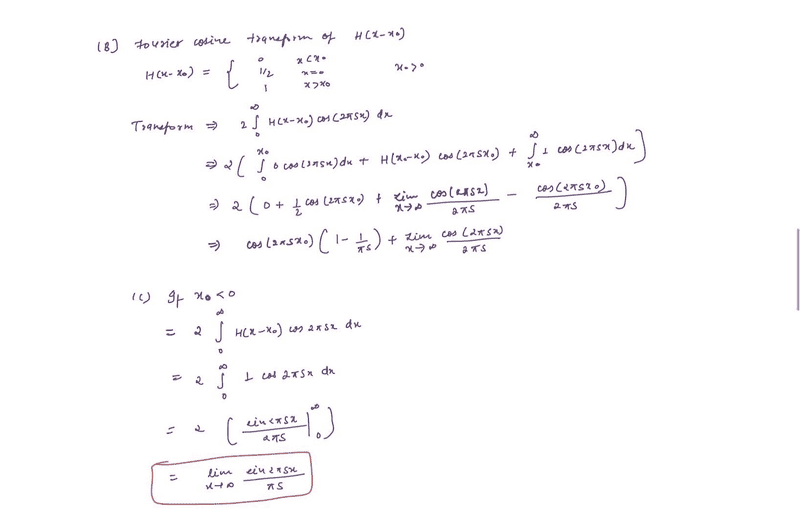 (B) Fourier cosine transform of H(x-x₀)
H(x-x₀) = { 0 x<x₀
1/2 x=0 x₀>0
1 x>x₀
Transform ⇒ 2∫₀^∞ H(x-x₀) cos(2πsx) dx
⇒ 2( ∫₀^x₀ 0 cos(2πsx)dx + H(x₀-x₀) cos(2πsx₀) + ∫_x₀^∞ 1 cos(2πsx)dx )
⇒ 2( 0 + 1/2 cos(2πsx₀) + lim x→∞ cos(2πsx)/2πs - cos(2πsx₀)/2πs )
⇒ cos(2πsx₀) (1 - 1/πs) + lim x→∞ cos(2πsx)/2πs
(C) If x₀<0
= 2 ∫₀^∞ H(x-x₀) cos 2πsx dx
= 2 ∫₀^∞ 1 cos 2πsx dx
= 2 ( sin 2πsx/2πs |₀^∞ )
= lim x→∞ sin 2πsx/πs